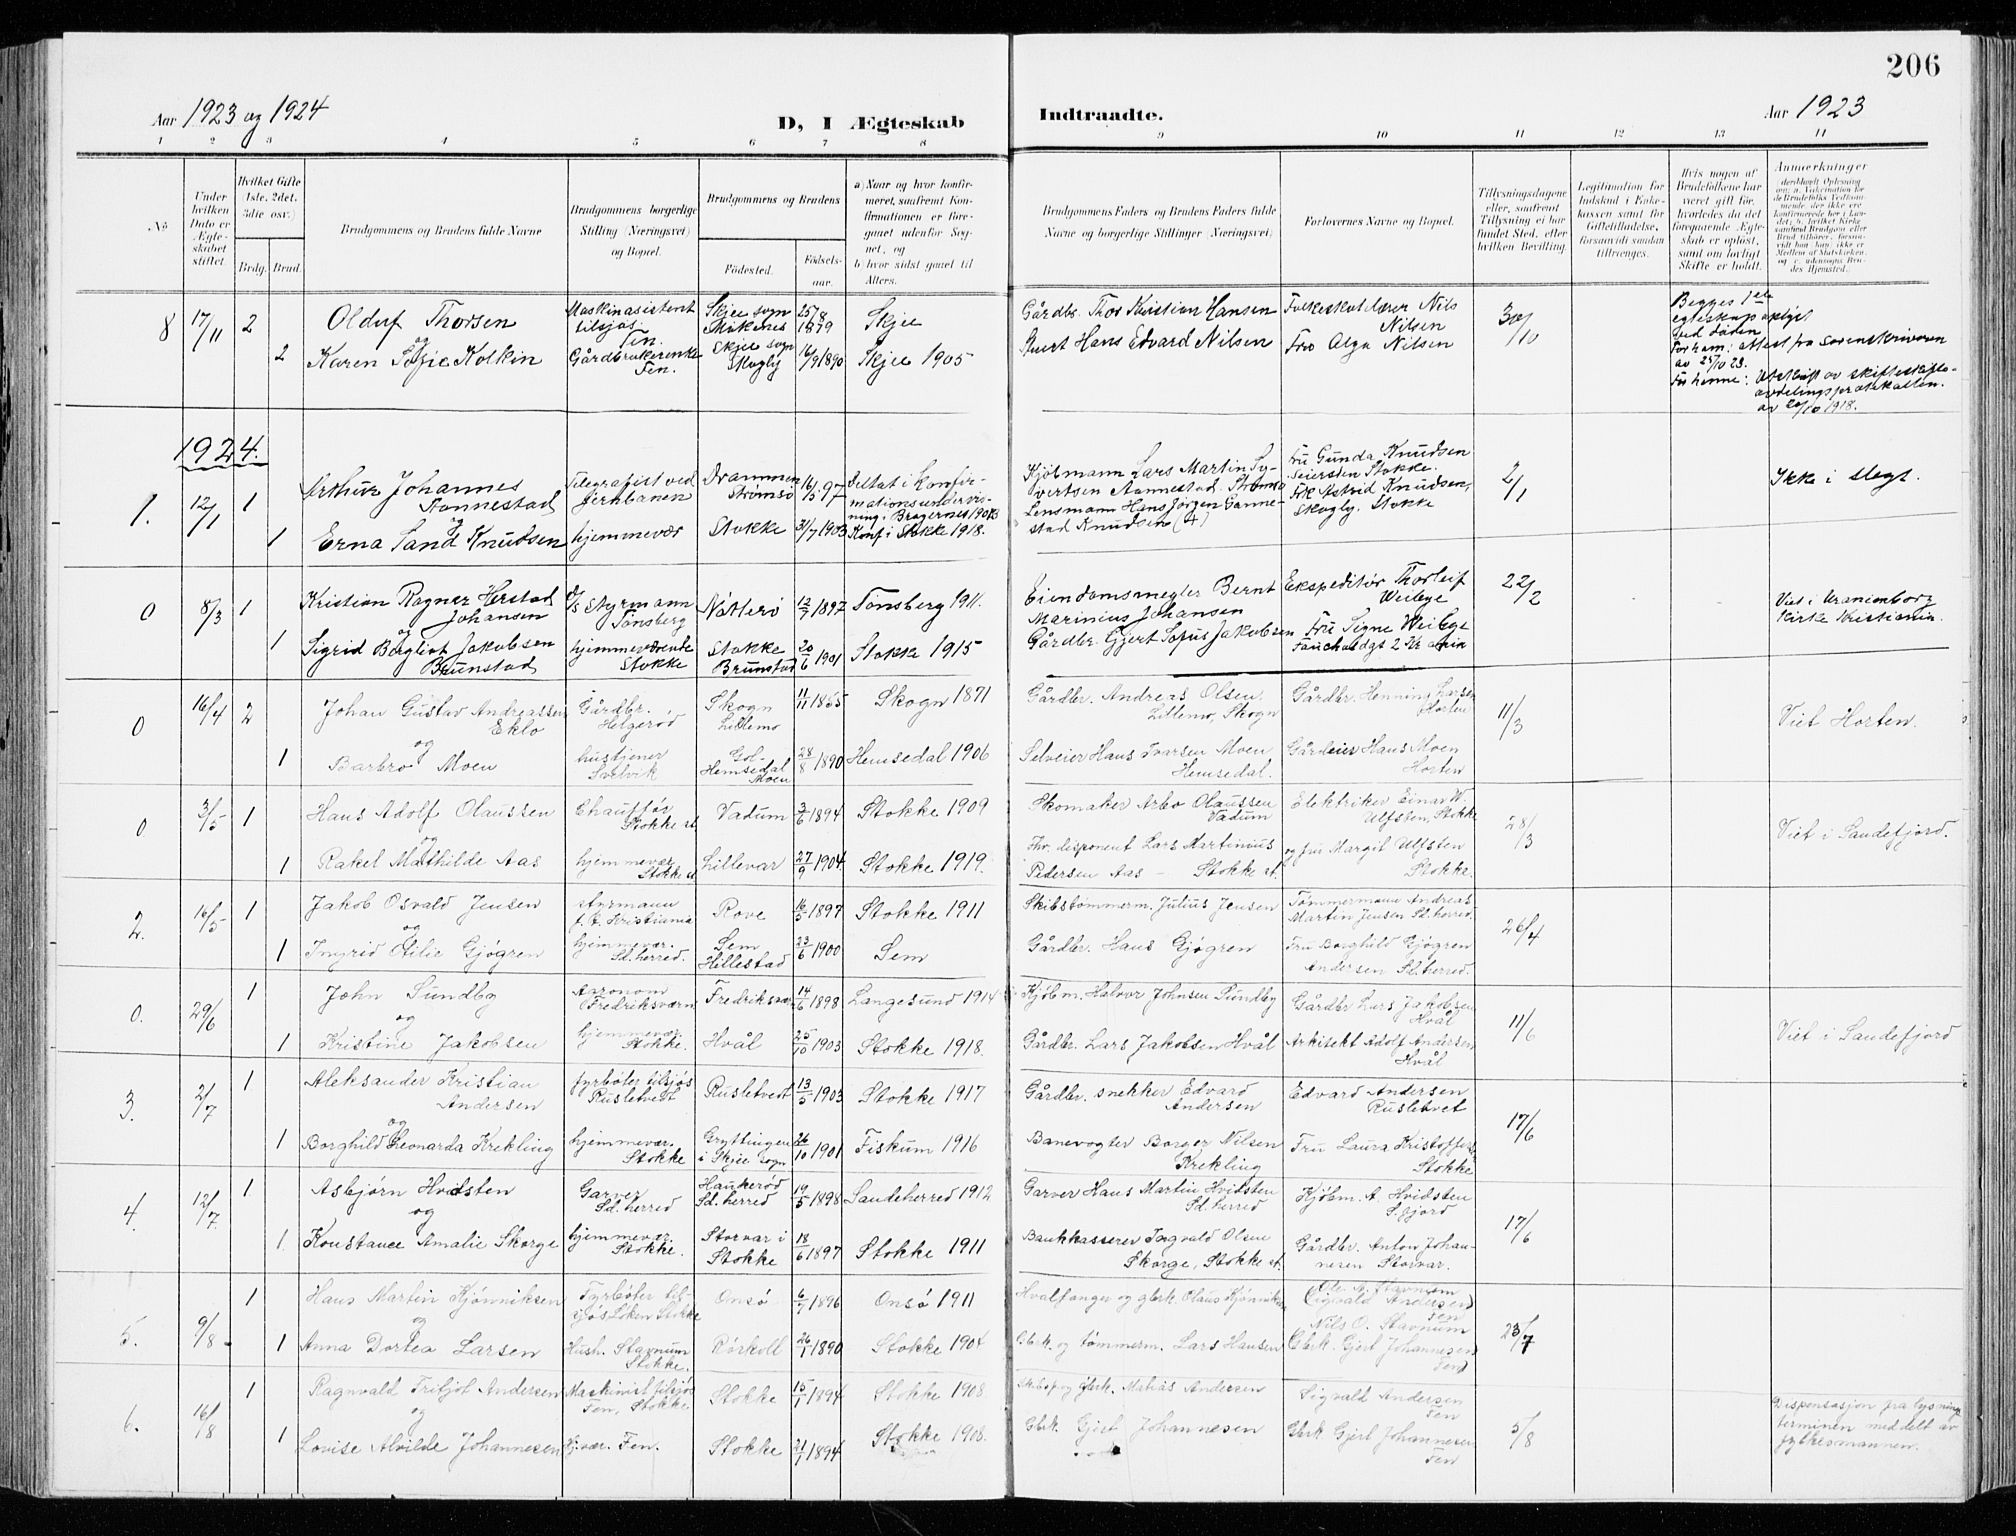 206
Aar 1923 og 1924
D, I Ægteskab
Indtraadte.
Aar 1923
1 2 3 4 5 6 7 8 9 10 11 12 13 14
No
Under hvilken Dato er Ægteskabet stiftet.
Hvilket Gifte (1ste, 2det, 3die osv.)
Brdg. Brud.
Brudgommens og Brudens fulde Navne
Brudgommens borgerlige Stilling (Næringsvei) og Bopæl.
Brudgommens og Brudens
Födested.
Födselsaar.
a) Naar og hvor konfirmeret, saafremt Konfirmationen er foregaaet udenfor Sognet, og
b) hvor sidst gaaet til Alters.
Brudgommens Faders og Brudens Faders fulde Navne og borgerlige Stillinger (Næringsvei)
Forlovernes Navne og Bopæl.
Tillysningsdagene eller, saafremt Tillysning ei har fundet Sted, efter hvilken Bevilling.
Legitimation for Indskud i Enkekassen samt for Giftetilladelse, forsaavidt saadan tiltrænges.
Hvis nogen af Brudefolkene har været gift før, hvorledes da det foregaaende Ægteskab er opløst, samt om lovligt Skifte er holdt.
Anmærkninger
8 17/11 2 Olduf Thorsen Maskinasistent tilsjøs Fen. Skjee sogn 25/8 1879 Skjee Gårdbr. Thor Kristian Hansen Folkeskolelærer Nils Nilsen 30/10
og
2 Karen Sofie Kolkin Gårdbrukerenke Fen. Skjee sogn Skogly 16/9 1890 Skjee 1905 Hans Edvard Nilsen Fru Olga Nilsen
Begges 1ste egteskap opløst ved døden
For ham: attest fra sorenskriveren av 25/10 23.
For henne: av 1918.
1924.
1. 12/1 1 Arthur Johannes Aannestad Telegrafist ved Jernbanen Drammen Strømsø 16/5 97 Deltat i konfirmationsundervisning i Bragernes Kjøbmann Lars Martin Syvertsen Aannestad Strømsø Fru Gunda Knudsen Stokke. 2/1 Ikke i slegt.
og
1 Erna Sand Knudsen hjemmevær Stokke 31/7 1903 Konf i Stokke 1918. Lensmann Hans Jørgen Gannestad Knudsen (4) Frk Astrid Knudsen, Skogly, Stokke
0 8/3 1 Kristian Ragnar Herstad Johansen Styrmann Tønsberg Nøtterø 12/7 1897 Tønsberg 1911. Eiendomsmegler Bernt Marinius Johansen Ekspeditør Thorleif Weibye 22/2 Viet i Uranienborg Kirke Kristiania.
og
1 Sigrid Bergliot Jakobsen Brunstad hjemmeværende Stokke Stokke Brunstad 20/6 1901 Stokke 1915 Gårdbr. Gjert Sofus Jakobsen Fru Signe Weibye
0 16/4 2 Johan Gustav Andreassen Eklo Gårdbr. Helgerød Skogn Litlemo 11/11 1855 Skogn 1871 Gårdbr. Andreas Olsen Litlemo, Skogn Gårdbr. Henning Larsen Horten 11/3 Viet Horten.
og
1 Barbro Moen hustjener Svelvik Gol-Hemsedal Moen 28/8 1890 Hemsedal 1906 Selveier Hans Ivarsen Moen Hemsedal. Gårdeier Hans Moen Horten
0 3/5 1 Hans Adolf Olaussen Chauffør Stokke st Vadum 3/6 1894 Stokke 1909 Skomaker Arbo Olaussen Vadum Elektriker Einar W. Ulfsten, Stokke 28/3 Viet i Sandefjord.
og
1 Rakel Mathilde Aas hjemmevær Stokke st Lillevar 27/9 1904 Stokke 1919. Fhv. disponent Lars Martinius Pedersen Aas – Stokke st. og fru Margit Ulfsten Stokke.
2. 16/5 1 Jakob Osvald Jensen styrmann f.t. Kristiania Rove 16/5 1897 Stokke 1911 Skibstømmerm. Julius Jensen Tømmermann Andreas Martin Jensen Sl. herred. 26/4
og
1 Ingrid Otilie Gjøgren hjemmevær. Sl. herred. Sem Hillestad 23/6 1900 Sem Gårdbr. Hans Gjøgren Fru Borghild Gjøgren Andersen Sl. herred.
0. 29/6 1 John Sundby Agronom Fredriksværn Fredriksværn 14/6 1898 Langesund 1914 Kjøbm. Halvor Johnsen Sundby Gårdbr Lars Jakobsen Hvål 11/6 Viet i Sandefjord
og
1 Kristine Jakobsen hjemmevær. Stokke. Hvål 25/10 1903 Stokke 1918. Gårdbr. Lars Jakobsen Hvål Arkitekt Adolf Andersen Hvål
3. 2/7 1 Aleksander Kristian Andersen fyrbøter tilsjøs Rusletvedt Rusletvedt 13/5 1903 Stokke 1917 Gårdbr. snekker Edvard Andersen Edvard Andersen Rusletvet 17/6
og
1 Borghild Leonarda Krekling hjemmevær. Stokke Gryttingen i Skjee sogn 26/10 1901 Fiskum 1916 Banevogter Borger Nilsen Krekling Fru Laura Kristoffersen Stokke
4. 12/7. 1 Asbjørn Hvidsten Garver Sd. herred Haukerød Sd. herred 19/5 1898 Sandeherred 1912 Garver Hans Martin Hvidsten Sd. herred Kjøbm. A. Hvidsten S.fjord 17/6
og
1. Konstance Amalie Skorge hjemmevær. Stokke. Storvar i Stokke 18/6 1897 Stokke 1911 Bankkasserer Ingvald Olsen Skorge, Stokke st. Gårdbr. Anton Johannesen Storvar.
5. 9/8 1 Hans Martin Kjønniksen Fyrbøter tilsjøs Løken Stokke Onsø 6/7 1896 Onsø 1911 Hvalfanger og gbrk. Olaus Kjønniksen (Sigvald Andersen) Fen 23/7
og
1 Anna Dortea Larsen Hush. Stavnum Stokke. Rørkoll 26/1 1890 Stokke 1904 Gbrk. og tømmerm. Lars Hansen Nils O. Stavnum (Gbrk. Gjert Johannesen Fen)
6. 16/8 1 Ragnvald Fritjof Andersen Maskinist tilsjøs Fen, Stokke Stokke 15/1 1894 Stokke 1908 Skibsp og gbrk. Matias Andersen Sigvald Andersen Fen 5/8 Dispensasjon fra lysningsterminen meddelt av fylkesmannen.
og
1 Lovise Alvilde Johannesen Hj.vær. Fen. Stokke 21/1 1894 Stokke 1908. Gbrk. Gjert Johannesen Gbrk Gjert Johannesen Fen